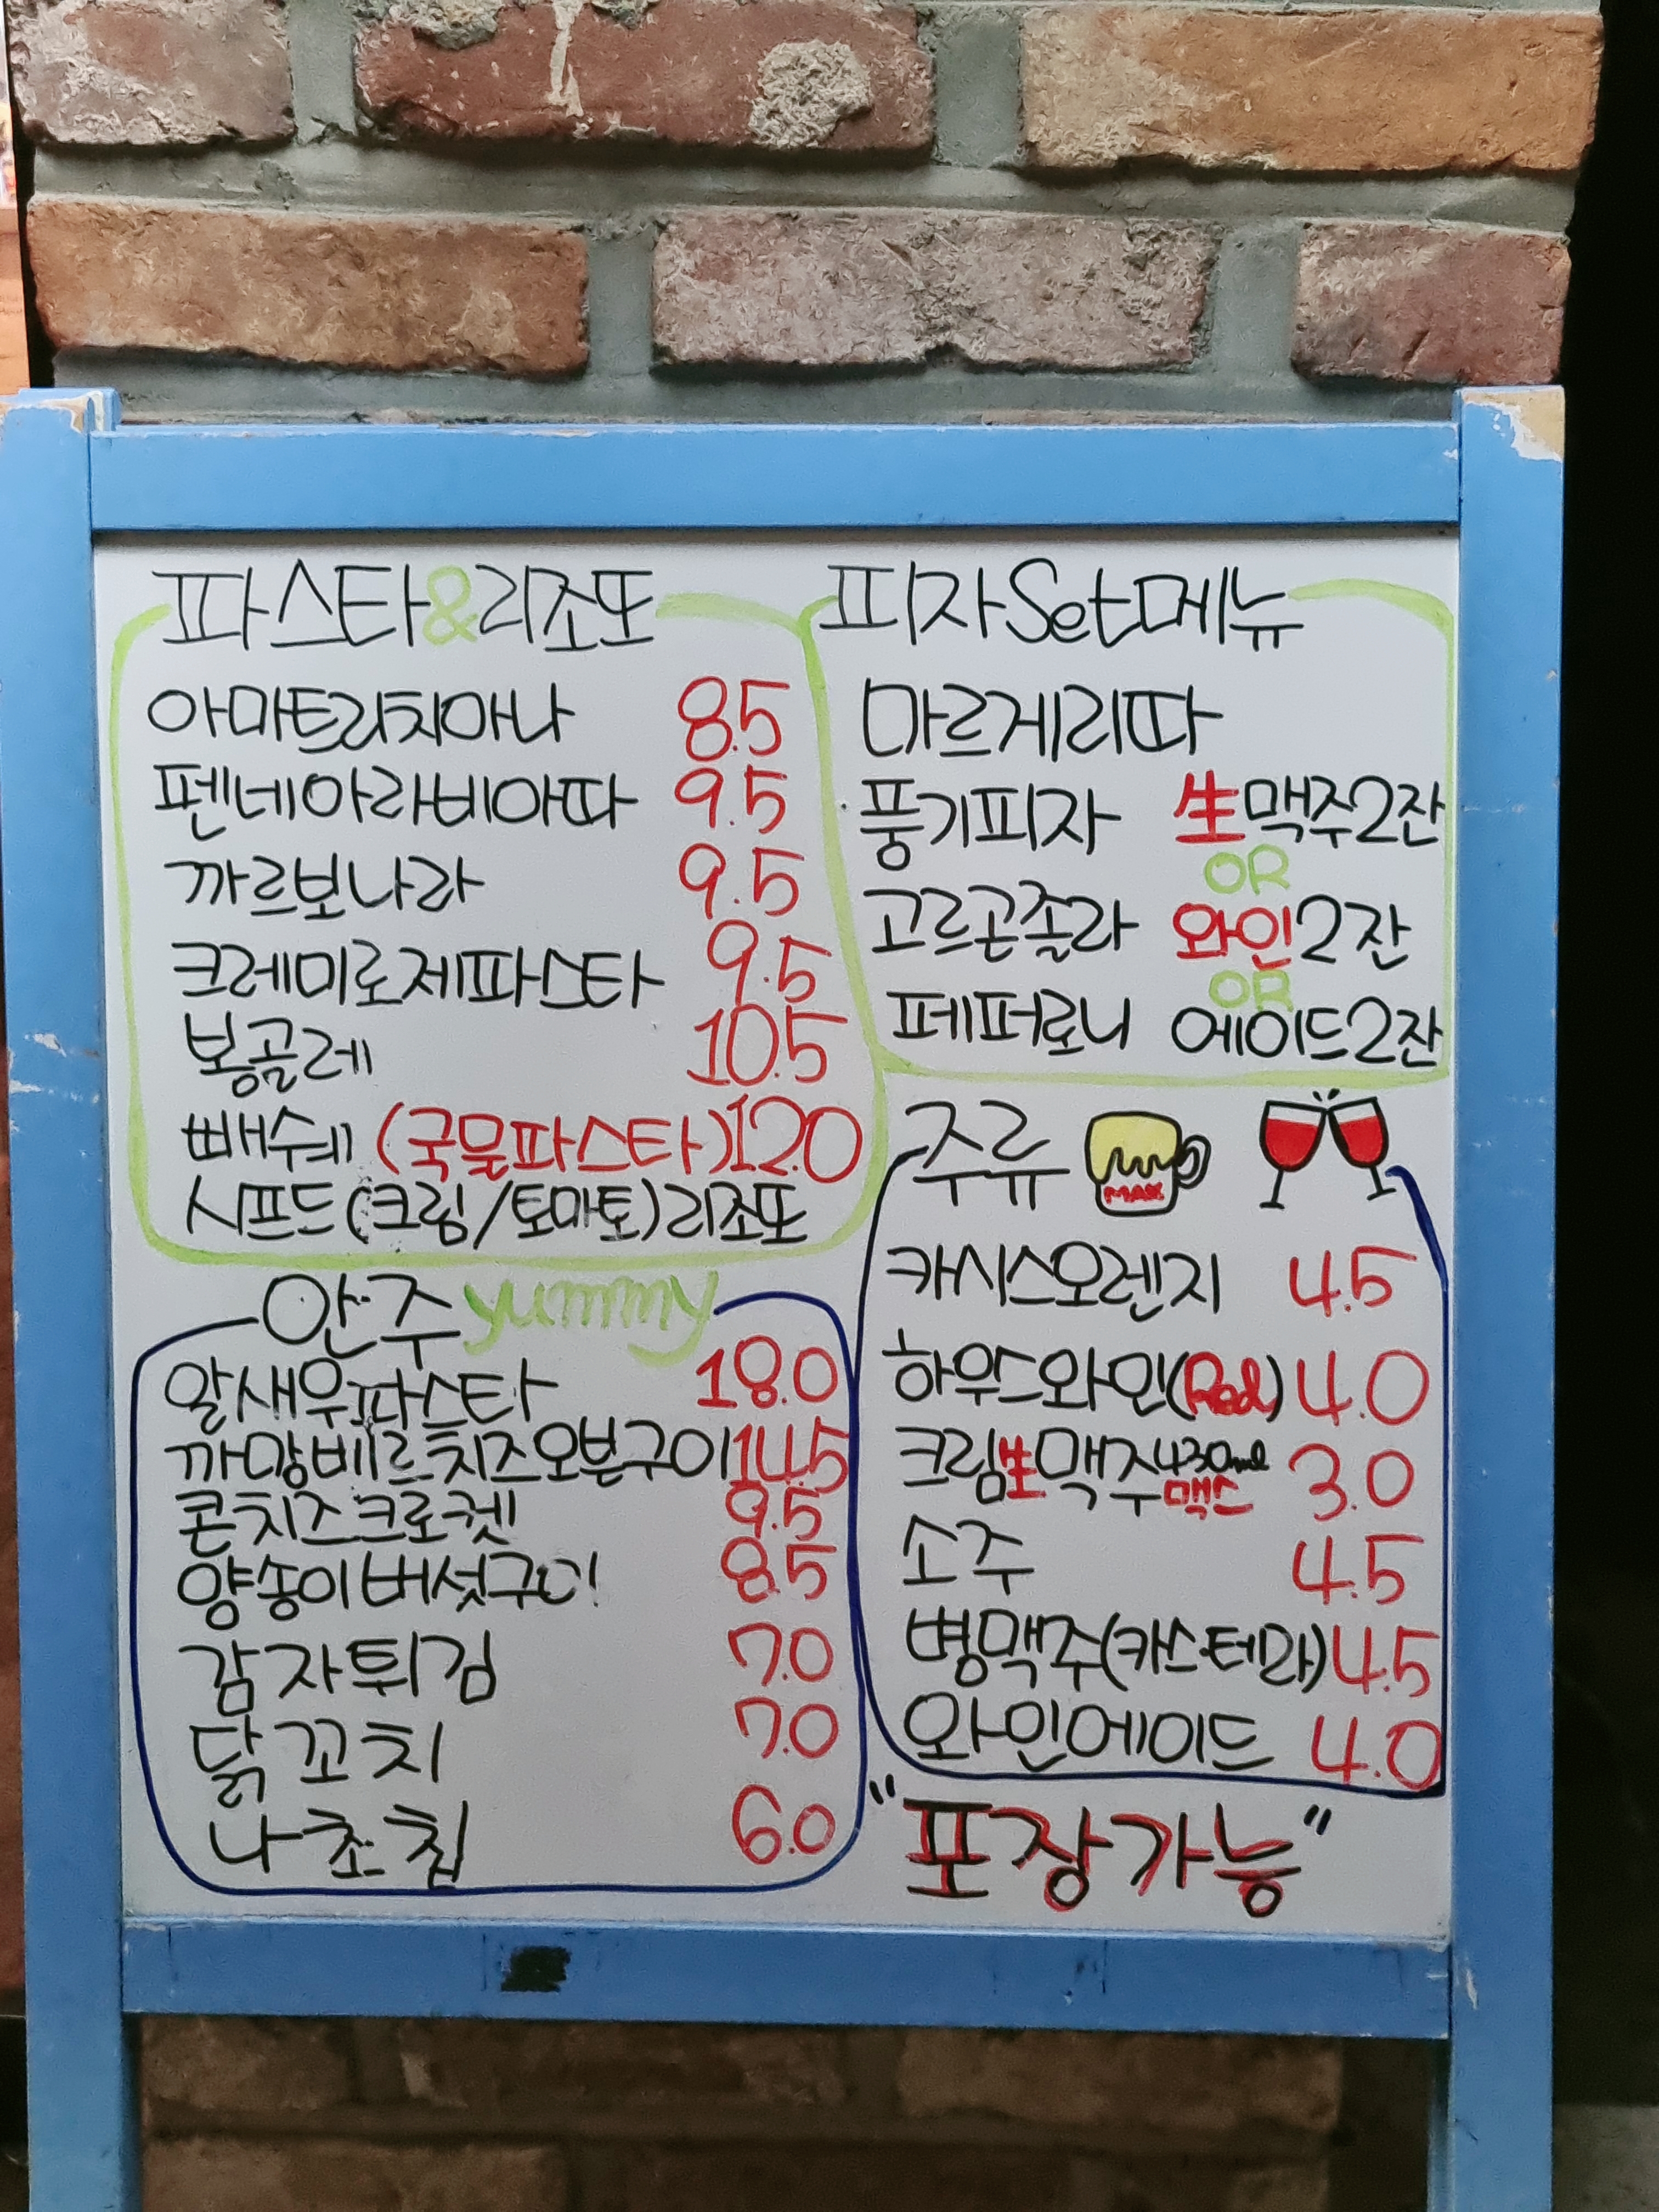 파스타&리조또
아마트리치아나 8.5
펜네아라비아따 9.5
까르보나라 9.5
크레미로제파스타 9.5
봉골레 10.5
빼쉐 (국물파스타) 12.0
시푸드(크림/토마토)리조또
피자Set메뉴
마르게리따
풍기피자 生맥주2잔
OR
고르곤졸라 와인2잔
OR
페퍼로니 에이드2잔
안주 yummy
알새우파스타 18.0
까망베르치즈오븐구이 14.5
콘치즈크로켓 9.5
양송이버섯구이 8.5
감자튀김 7.0
닭꼬치 7.0
나쵸칩 6.0
주류
MAX
카시스오렌지 4.5
하우스와인(Red) 4.0
크림生맥주430ml 3.0
맥스
소주 4.5
병맥주(카스·테라) 4.5
와인에이드 4.0
"포장가능"